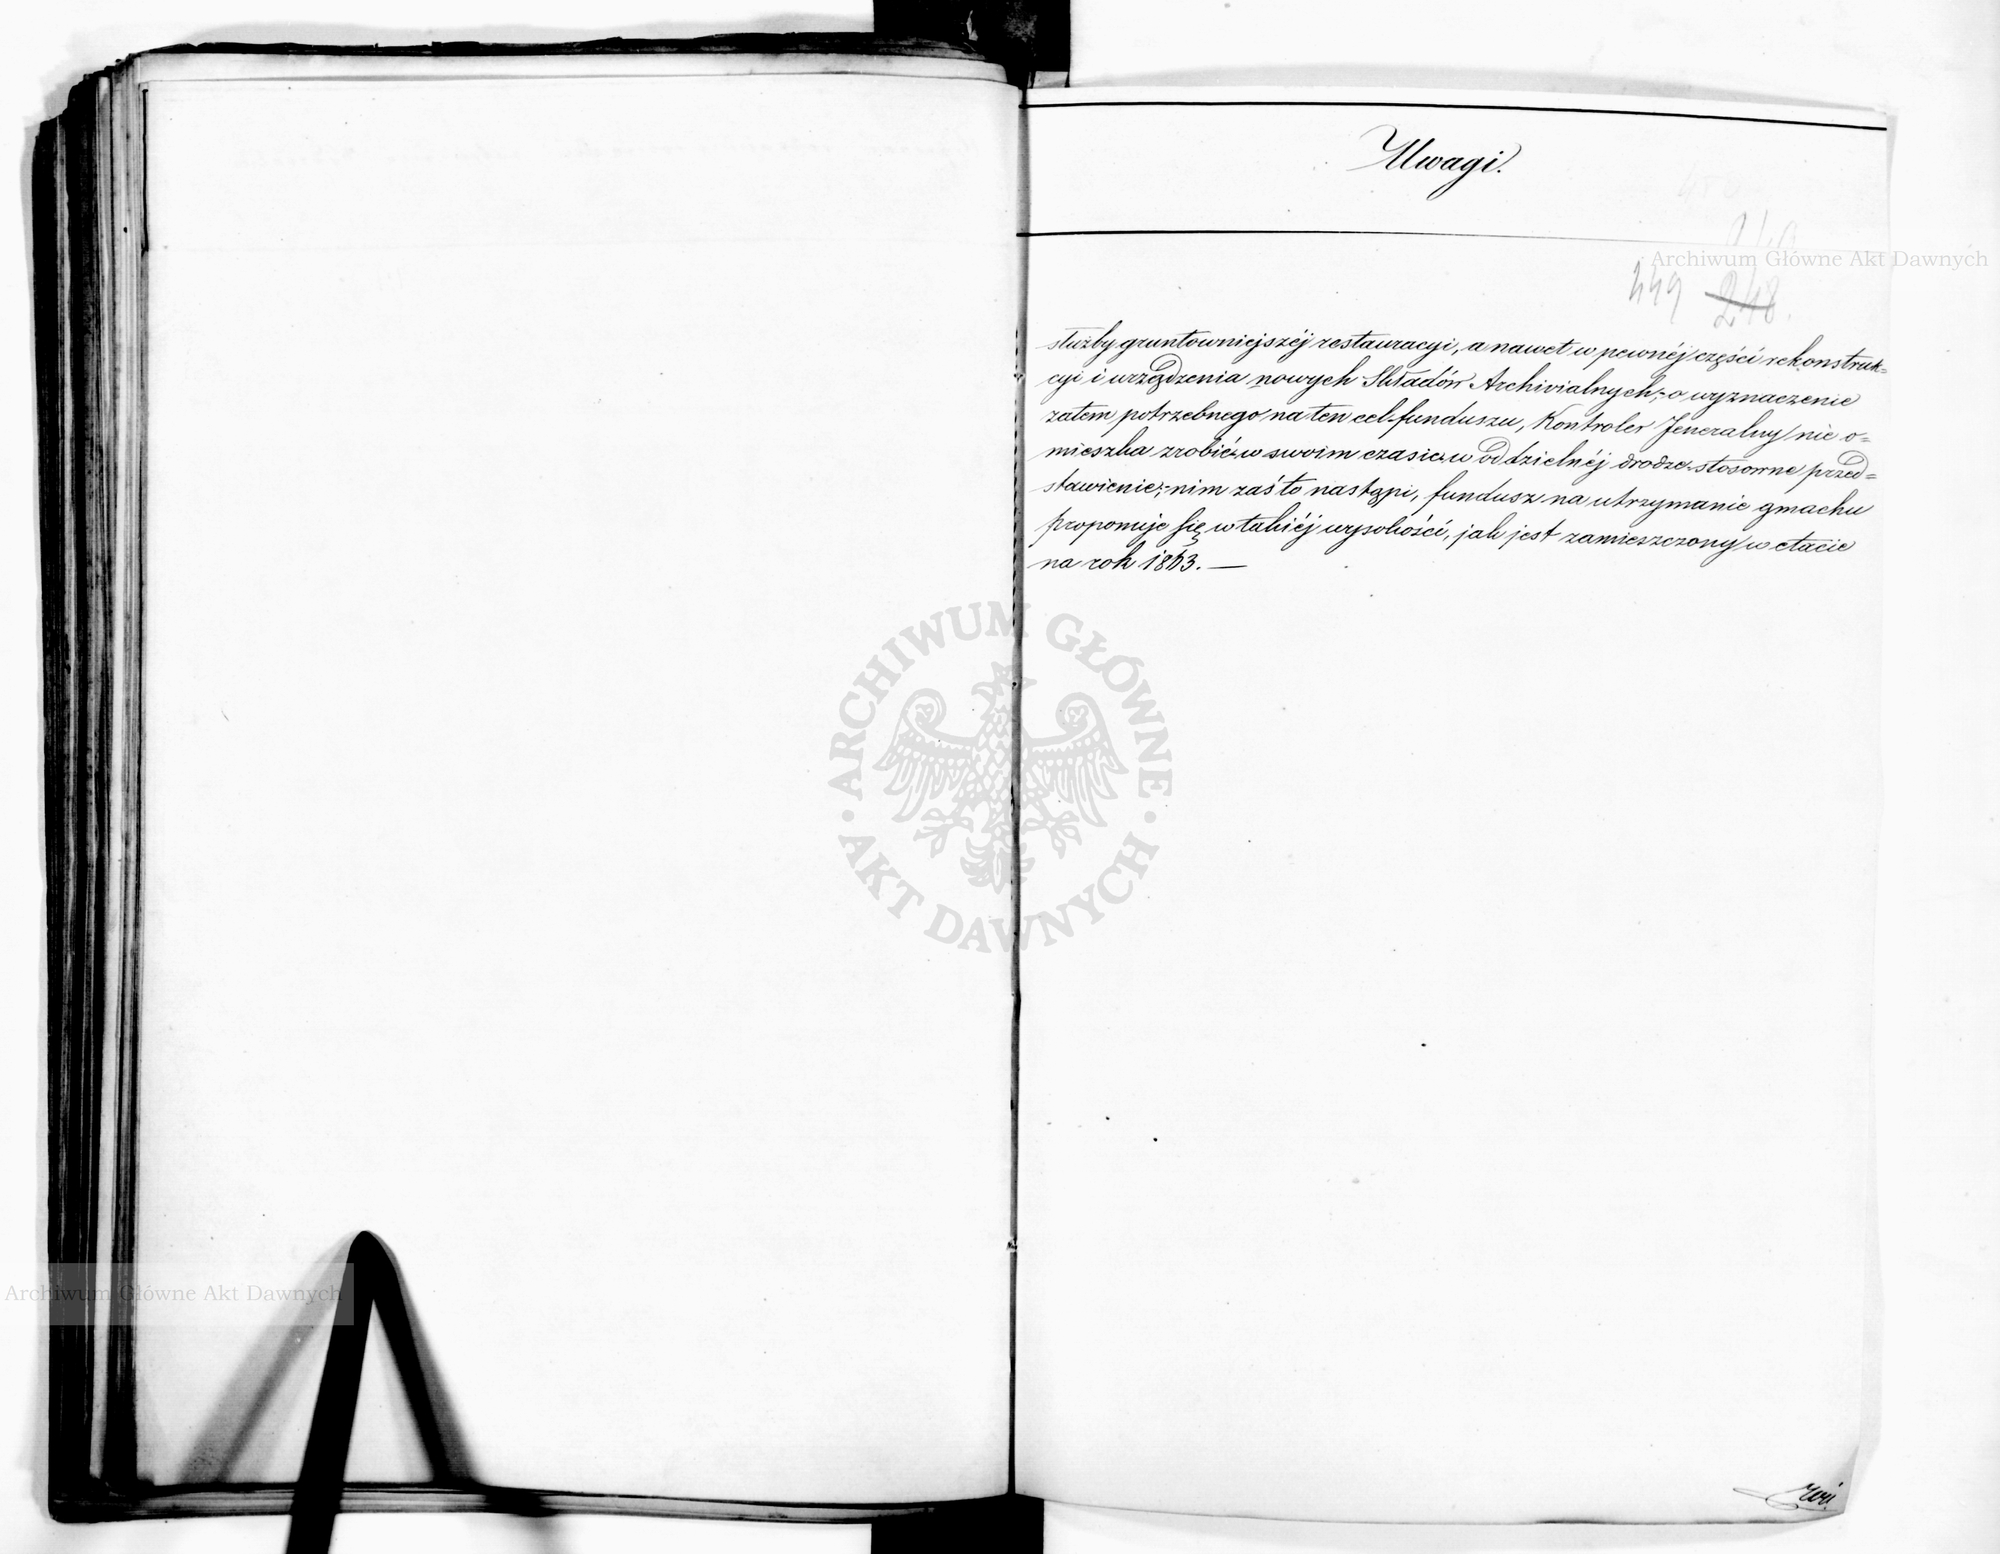 Uwagi.
449 248.
służby gruntowniejszéj restauracyi, a nawet w pewnéj części rekonstruk=
cyi i urządzenia nowych Składów Archivialnych;- o wyznaczenie
zatem potrzebnego na ten cel funduszu, Kontroler Jeneralny nie o=
mieszka zrobić w swoim czasie w oddzielnéj drodze stosowne przed=
stawienie;- nim zaś to nastąpi, fundusz na utrzymanie gmachu
proponuje się w takiéj wysokości, jak jest zamieszczony w etacie
na rok 1863. —
Archiwum Główne Akt Dawnych
ARCHIWUM GŁÓWNE AKT DAWNYCH
Archiwum Główne Akt Dawnych